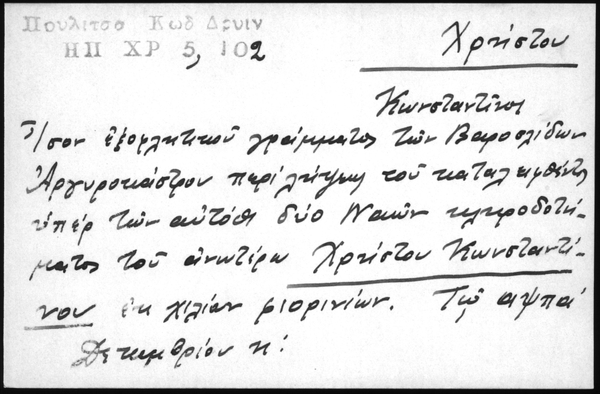 Πουλιτσα Κωδ Δρυιν
ΗΠ ΧΡ 5, 102
Χρήστου
Κωνσταντῖνος
Ἴσον ἐξοφλητικοῦ γράμματος τῶν Βαροσλίδων
Ἀργυροκάστρου περιλήψεως τοῦ καταλειφθέντος
ὑπέρ τῶν αὐτόθι δύο Ναῶν κληροδοτή-
ματος τοῦ ἀνωτέρω Χρήστου Κωνσταντί-
νου ἐκ χιλίων φιορινίων. Τῷ αψπα΄
Δεκεμβρίου κ΄.